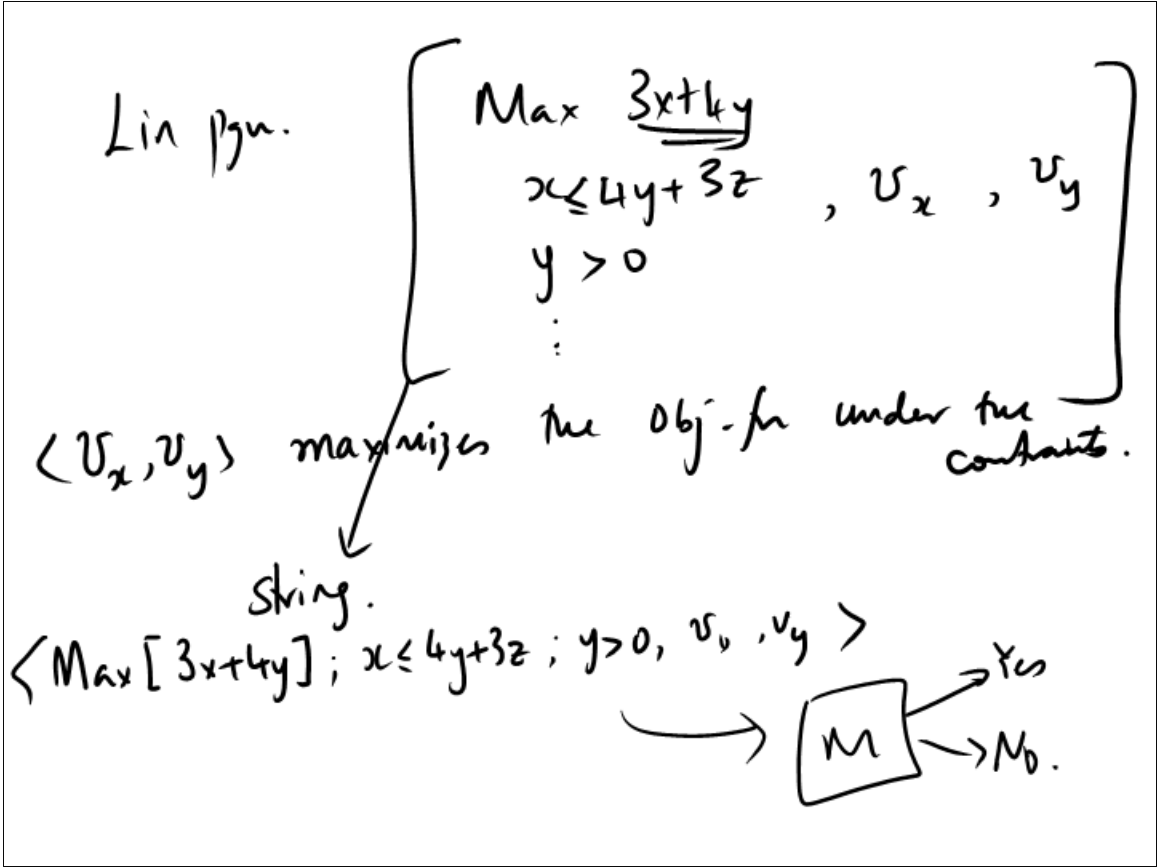 Lin pgm.
Max 3x+4y
x≤4y+3z , v_x , v_y
y > 0
⋮
<v_x, v_y> maximizes the obj-fn under the
contraints.
string.
<Max[3x+4y]; x≤4y+3z ; y>0, v_x , v_y >
Yes
M
No.